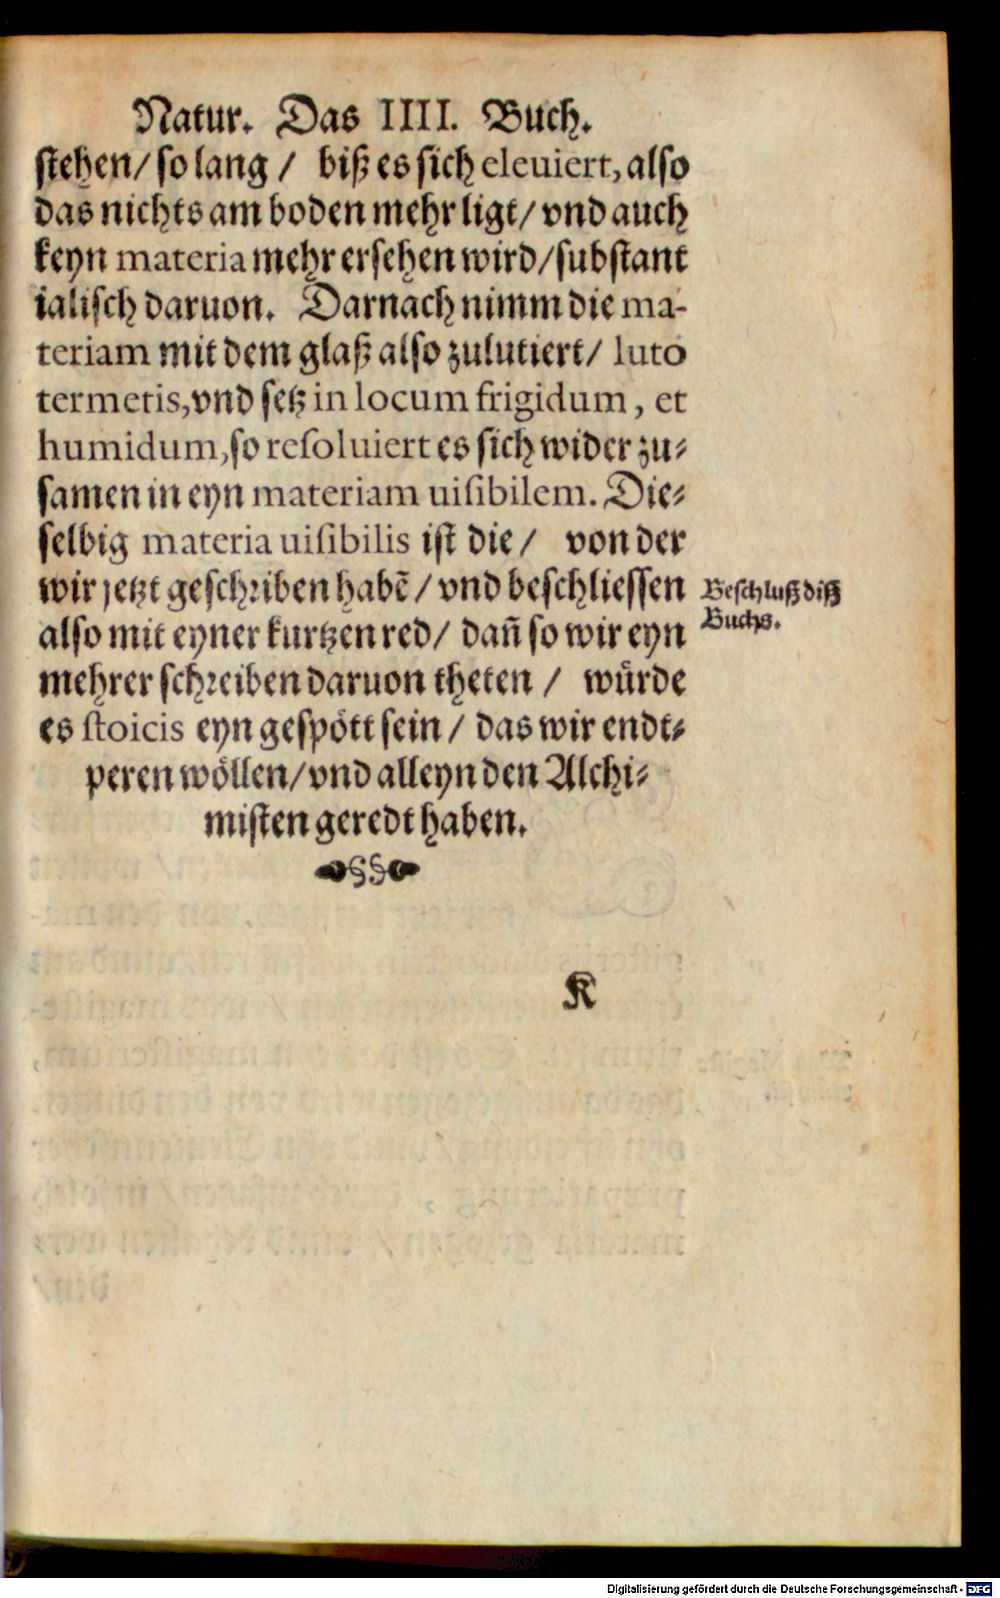 Natur. Das IIII. Buch.
stehen/ so lang / biß es sich eleuiert, also
das nichts am boden mehr ligt/ vnd auch
keyn materia mehr ersehen wird/ substant
ialisch daruon. Darnach nimm die ma-
teriam mit dem glaß also zulutiert/ luto
termetis, vnd setz in locum frigidum, et
humidum, so resoluiert es sich wider zu⸗
samen in eyn materiam uisibilem. Die⸗
selbig materia uisibilis ist die/ von der
wir jetzt geschriben habẽ/ vnd beschliessen
Beschluß diß
Buchs.
also mit eyner kurtzen red/ dañ so wir eyn
mehrer schreiben daruon theten / wuͤrde
es stoicis eyn gespoͤtt sein/ das wir endt⸗
peren woͤllen/ vnd alleyn den Alchi⸗
misten geredt haben.
K
Digitalisierung gefördert durch die Deutsche Forschungsgemeinschaft - DFG